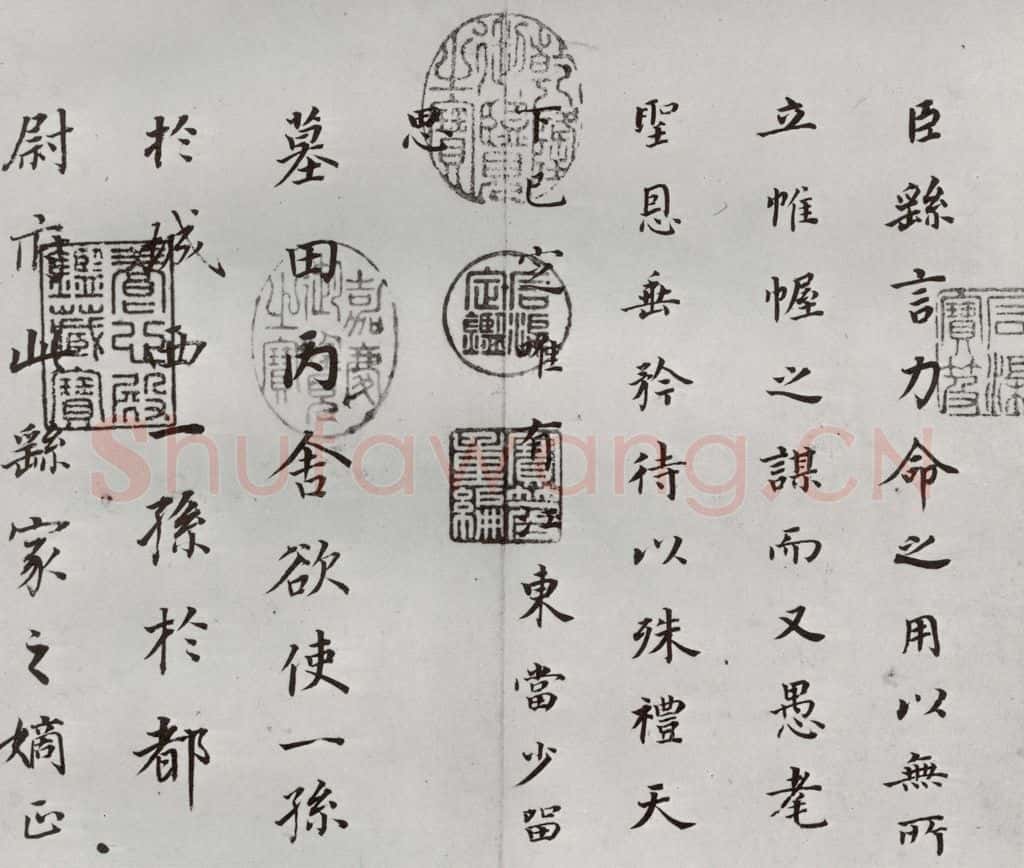 臣繇言力命之用以無所
立帷幄之謀而又愚耄
聖恩垂矜待以殊禮天
下已定唯有江東當少留
思
墓田丙舍欲使一孫
於城西一孫於都
尉府此繇家之嫡正
乾隆御覽之寶
嘉慶御覽之寶
石渠寶笈
石渠定鑑
寶笈重編
養心殿鑑藏寶
Shufawang.CN